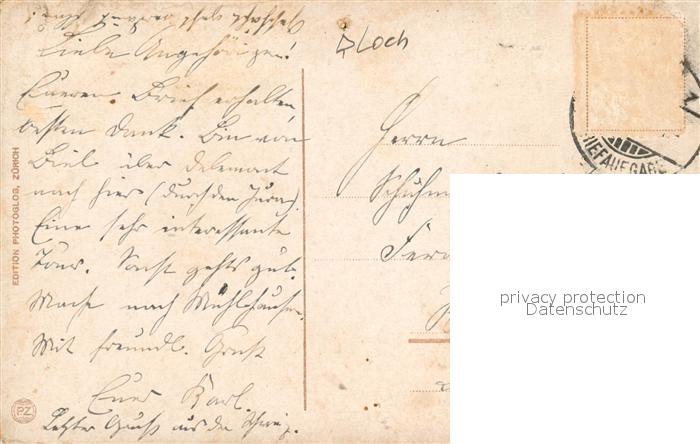 Liebe Angehörigen!
Eueren Brief erhalten,
besten Dank. Bin von
Biel über Delemont
nach hier (durch den Jura).
Eine sehr interessante
Tour. Sonst gehts gut.
Mache nach Mühlhausen.
Mit freundl. Gruß
Euer Karl.
Letzter Gruß aus der Schweiz.
Loch
Herrn
EDITION PHOTOGLOB, ZÜRICH
PZ
BRIEFAUFGABE
privacy protection
Datenschutz